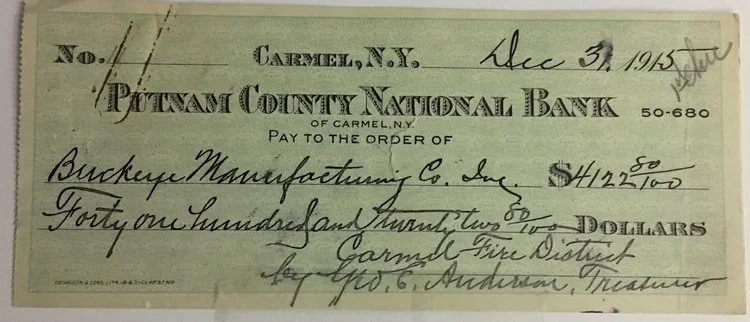 No. CARMEL, N.Y. Dec 31, 1915
PUTNAM COUNTY NATIONAL BANK 50-680
OF CARMEL, N.Y.
PAY TO THE ORDER OF
Buckeye Manufacturing Co. Inc. $4122 80/100
Forty one hundred and twenty two 80/100 DOLLARS
Carmel Fire District
by Geo. E. Anderson, Treasurer